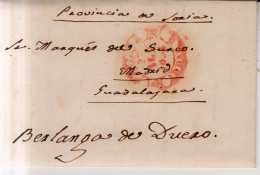 Provincia de Soria.
Sr. Marqués del Surco.
Madrid
Guadalajara.
Berlanga de Duero.